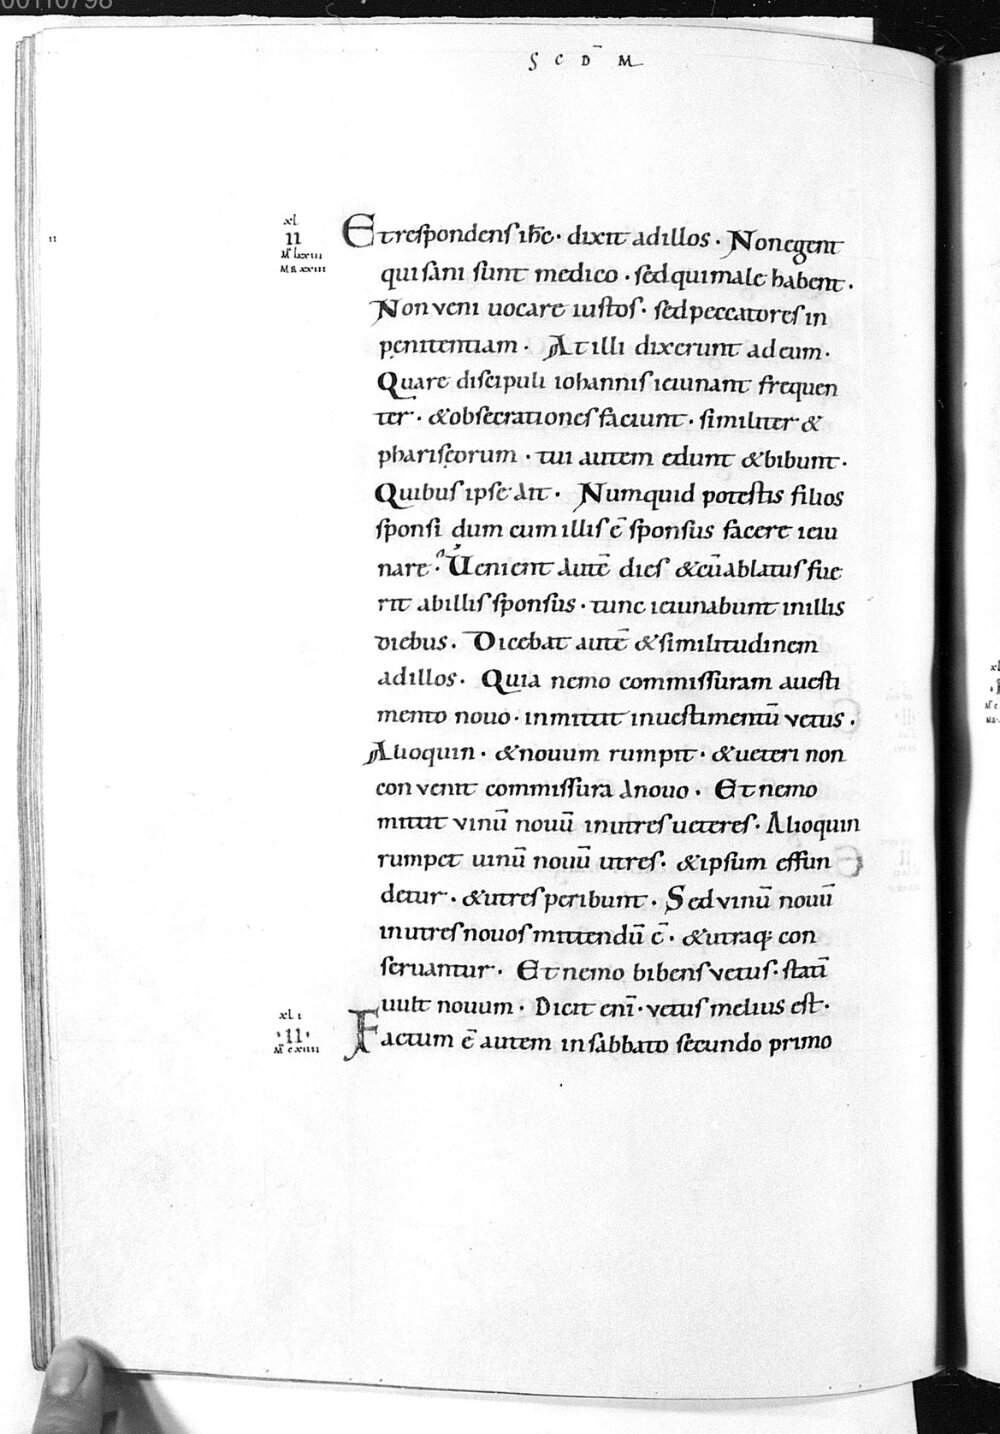 00110798
S C D̄ M
xl
II
M̄ lxxIII
MR xxIII
II
Et respondens ih̄c· dixit ad illos · Non egent
qui sani sunt medico · sed qui male habent ·
Non veni uocare iustos · sed peccatores in
penitentiam · At illi dixerunt ad eum ·
Quare discipuli iohannis ieiunant frequen
ter · & obsecrationes faciunt · similiter &
phariseorum · tui autem edunt & bibunt ·
Quibus ipse ait · Numquid potestis filios
sponsi dum cum illis ē sponsus facere ieiu
nare · Uenient autē dies & cū ablatus fue
rit ab illis sponsus · tunc ieiunabunt in illis
diebus · Dicebat autē & similitudinem
ad illos · Quia nemo commissuram a uesti
mento nouo · inmittit in uestimentū vetus ·
Alioquin · & nouum rumpit · & ueteri non
convenit commissura a nouo · Et nemo
mittit vinū nouū in utres ueteres · Alioquin
rumpet uinū nouū utres · & ipsum effun
detur · & utres peribunt · Sed vinū nouū
in utres nouos mittendū ē · & utraq; con
seruantur · Et nemo bibens vetus · statī
uult nouum · Dicit enī · vetus melius est ·
xl I
·II·
M̄ cxIIII
Factum ē autem in sabbato secundo primo